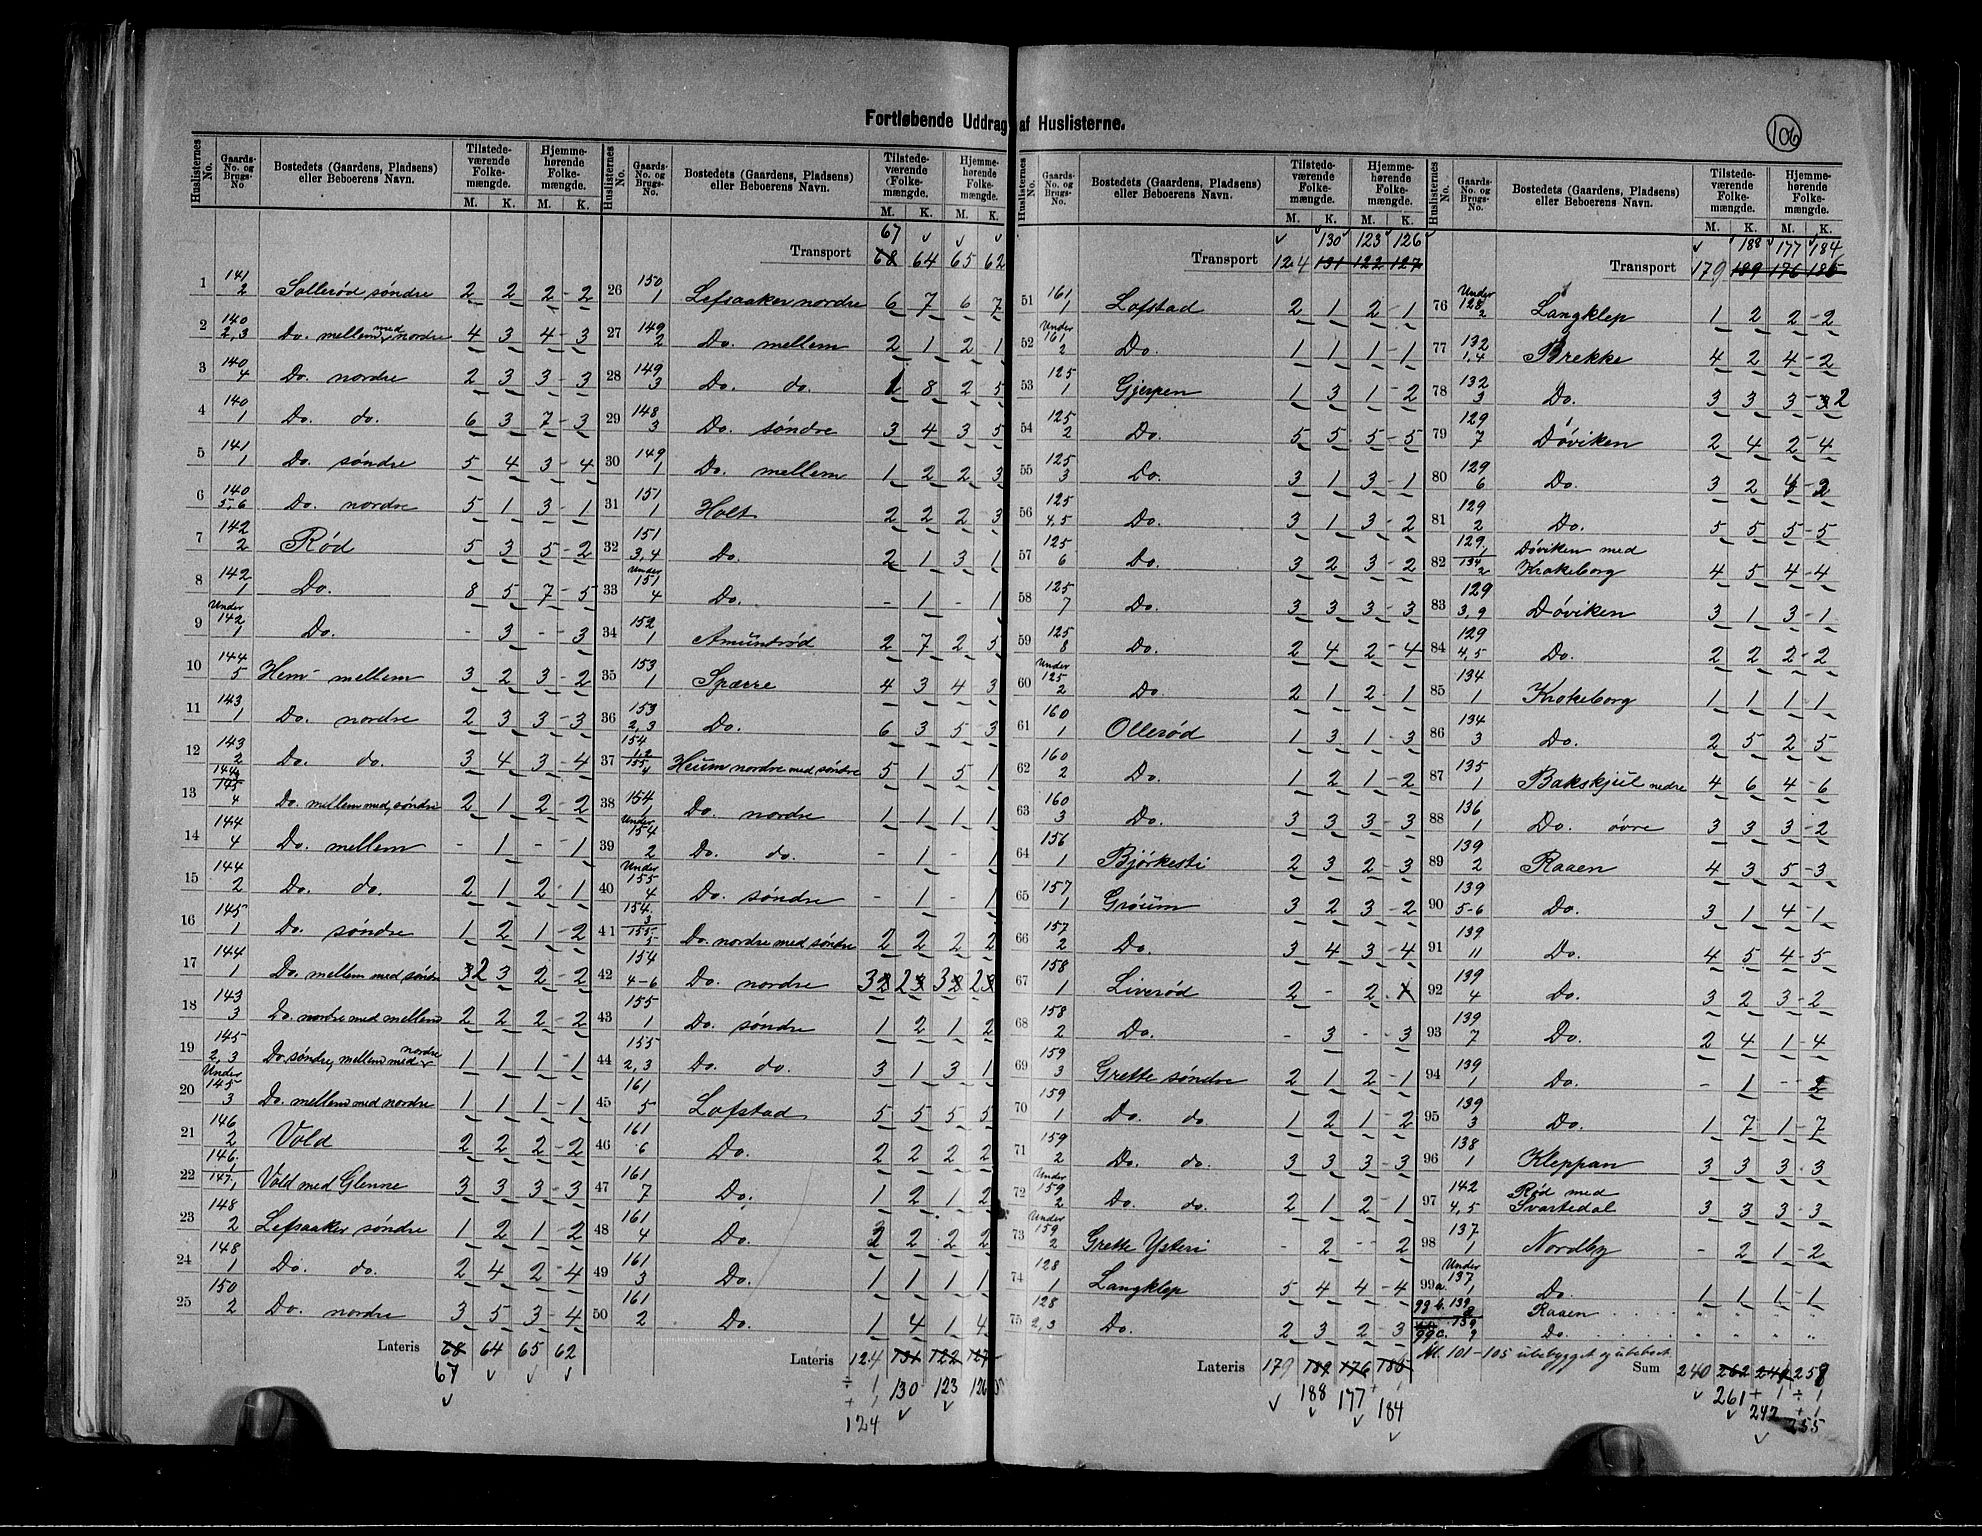 Fortløbende Uddrag af Huslisterne.
106
Huslisternes No. | Gaards-No. og Brugs-No. | Bostedets (Gaardens, Pladsens) eller Beboerens Navn. | Tilstedeværende Folkemængde. M. K. | Hjemmehørende Folkemængde. M. K.
1 141/2 Sollerød søndre 2 2 2 - 2
2 140/2,3 Do. mellem med nordre 4 3 4 - 3
3 140/4 Do. nordre 2 3 3 - 3
4 140/1 Do. do. 6 3 7 - 3
5 141/1 Do. søndre 5 4 3 - 4
6 140/5,6 Do. nordre 5 1 3 - 1
7 142/2 Rød 5 3 5 - 2
8 142/1 Do. 8 5 7 - 5
9 Under 142/1 Do. - 3 - 3
10 144/5 Hem mellem 3 2 3 - 2
11 143/1 Do. nordre 2 3 3 - 3
12 143/2 Do. do. 3 4 3 - 4
13 144/145/4 Do. mellem med søndre 2 1 2 - 2
14 144/4 Do. mellem - 1 - 1
15 144/2 Do. do. 2 1 2 - 1
16 145/1 Do. søndre 1 2 1 - 2
17 144/1 Do. mellem med søndre 2 3 2 - 2
18 143/3 Do. nordre med mellem 2 2 2 - 2
19 145/2,3 Do. søndre, mellem med nordre 1 1 1 - 1
20 Under 145/3 Do. mellem med nordre 1 1 1 - 1
21 146/2 Vold 2 2 2 - 2
22 146/1 147/1 Vold med Glenne 3 3 3 - 3
23 148/2 Lefsaaker søndre 1 2 1 - 2
24 148/1 Do. do. 2 4 2 - 4
25 150/2 Do. nordre 3 5 3 - 4
Lateris 68 64 65 62
67
Transport 68 64 65 62
67
26 150/1 Lefsaaker nordre 6 7 6 7
27 149/2 Do. mellem 2 1 2 1
28 149/3 Do. do. 1 8 2 5
29 148/3 Do. søndre 3 4 3 5
30 149/1 Do. mellem 1 2 2 3
31 151/1 Holt 2 2 2 3
32 151/3,4 Do. 2 1 3 1
33 Under 151/4 Do. - 1 - 1
34 152/1 Amundrød 2 7 2 5
35 153/1 Spærre 4 3 4 3
36 153/2,3 Do. 6 3 5 3
37 154/1,2 155/4 Heum nordre med søndre 5 1 5 1
38 154/1 Do. nordre 1 1 1 1
39 Under 154/2 Do. do. - 1 - 1
40 Under 155/4 Do. søndre - 1 - 1
41 154/3 155/5 Do. nordre med søndre 2 2 2 2
42 154/4-6 Do. nordre 3 2 3 2
43 155/1 Do. søndre 1 2 1 2
44 155/2,3 Do. do. 3 1 3 1
45 161/5 Lofstad 5 5 5 5
46 161/6 Do. 2 2 2 2
47 161/7 Do. 1 2 1 2
48 161/4 Do. 2 2 2 2
49 161/3 Do. 1 1 1 1
50 161/2 Do. 1 4 1 4
Lateris 124 131 122 127
÷ 1 130 123 126
+ 1
124
Transport 124 131 122 127
130 123 126
51 161/1 Lofstad 2 1 2 - 1
52 Under 161/2 Do. 1 1 1 - 1
53 125/1 Gjerpen 1 3 1 - 2
54 125/2 Do. 5 5 5 - 5
55 125/3 Do. 3 1 3 - 1
56 125/4,5 Do. 3 1 3 - 2
57 125/6 Do. 3 2 3 - 2
58 125/7 Do. 3 3 3 - 3
59 125/8 Do. 2 4 2 - 4
60 Under 125/2 Do. 2 1 2 - 1
61 160/1 Ollerød 1 3 1 - 3
62 160/2 Do. 1 2 1 - 2
63 160/3 Do. 3 3 3 - 3
64 156/1 Bjørkesti 2 3 2 - 3
65 157/1 Grøum 3 2 3 - 2
66 157/2 Do. 3 4 3 - 4
67 158/1 Liverød 2 - 2
68 158/2 Do. - 3 - 3
69 159/3 Grette søndre 2 1 2 - 1
70 159/1 Do. do. 1 2 1 - 2
71 159/2 Do. do. 3 3 3 - 3
72 Under 159/2 Do. do. 2 1 2 - 1
73 Under 159/2 Grette Ysteri - 2 - 2
74 128/1 Langklep 5 4 4 - 4
75 128/2,3 Do. 2 3 2 - 3
Lateris 179 189 176 185
188 177 184
Transport 179 189 176 185
188 177 184
76 Under 128/2 Langklep 1 2 2 - 2
77 132/1,4 Brekke 4 2 4 - 2
78 132/3 Do. 3 3 3 - 3 2
79 129/7 Døviken 2 4 2 - 4
80 129/6 Do. 3 2 4 - 2
81 129/2 Do. 5 5 5 - 5
82 129/1 134/2 Døviken med Krokeborg 4 5 4 - 4
83 129/3,9 Døviken 3 1 3 - 1
84 129/4,5 Do. 2 2 2 - 2
85 134/1 Krokeborg 1 1 1 - 1
86 134/3 Do. 2 5 2 - 5
87 135/1 Bakskjul nedre 4 6 4 - 6
88 136/1 Do. øvre 3 3 3 - 2
89 139/2 Raaen 4 3 5 - 3
90 139/5-6 Do. 3 1 4 - 1
91 139/11 Do. 4 5 4 - 5
92 139/4 Do. 3 2 3 - 2
93 139/7 Do. 2 4 1 - 4
94 139/1 Do. - 1 - 2
95 139/3 Do. 1 7 1 - 7
96 138/1 Kleppan 3 3 3 - 3
97 142/4,5 Rød med Svartedal 3 3 3 - 3
98 137/1 Nordby - 2 1 - 2
99a. Under 137/1 Do. 1 1 1 - 1
99 b. 139/8 Raaen . . . . " " " "
99c. 139/9 Do. . . . . " " " "
Nl. 101-105 ubebygget og ubeboet
Sum 240 262 241 258
261 + 1 ÷ 1
242 + 1
255